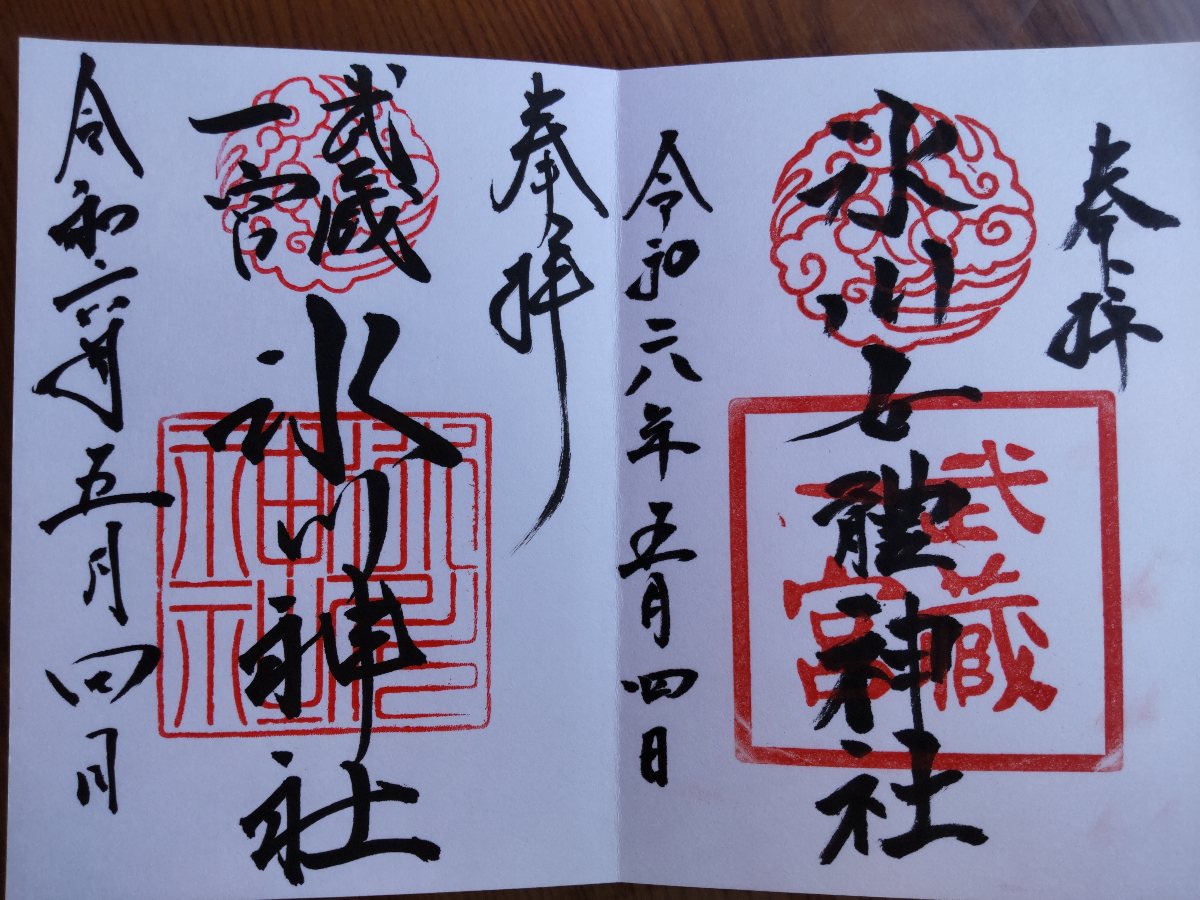 奉拝
氷川女體神社
武蔵
一宮
令和六年五月四日
奉拝
武蔵
一宮
氷川神社
氷川
神社
令和六年五月四日